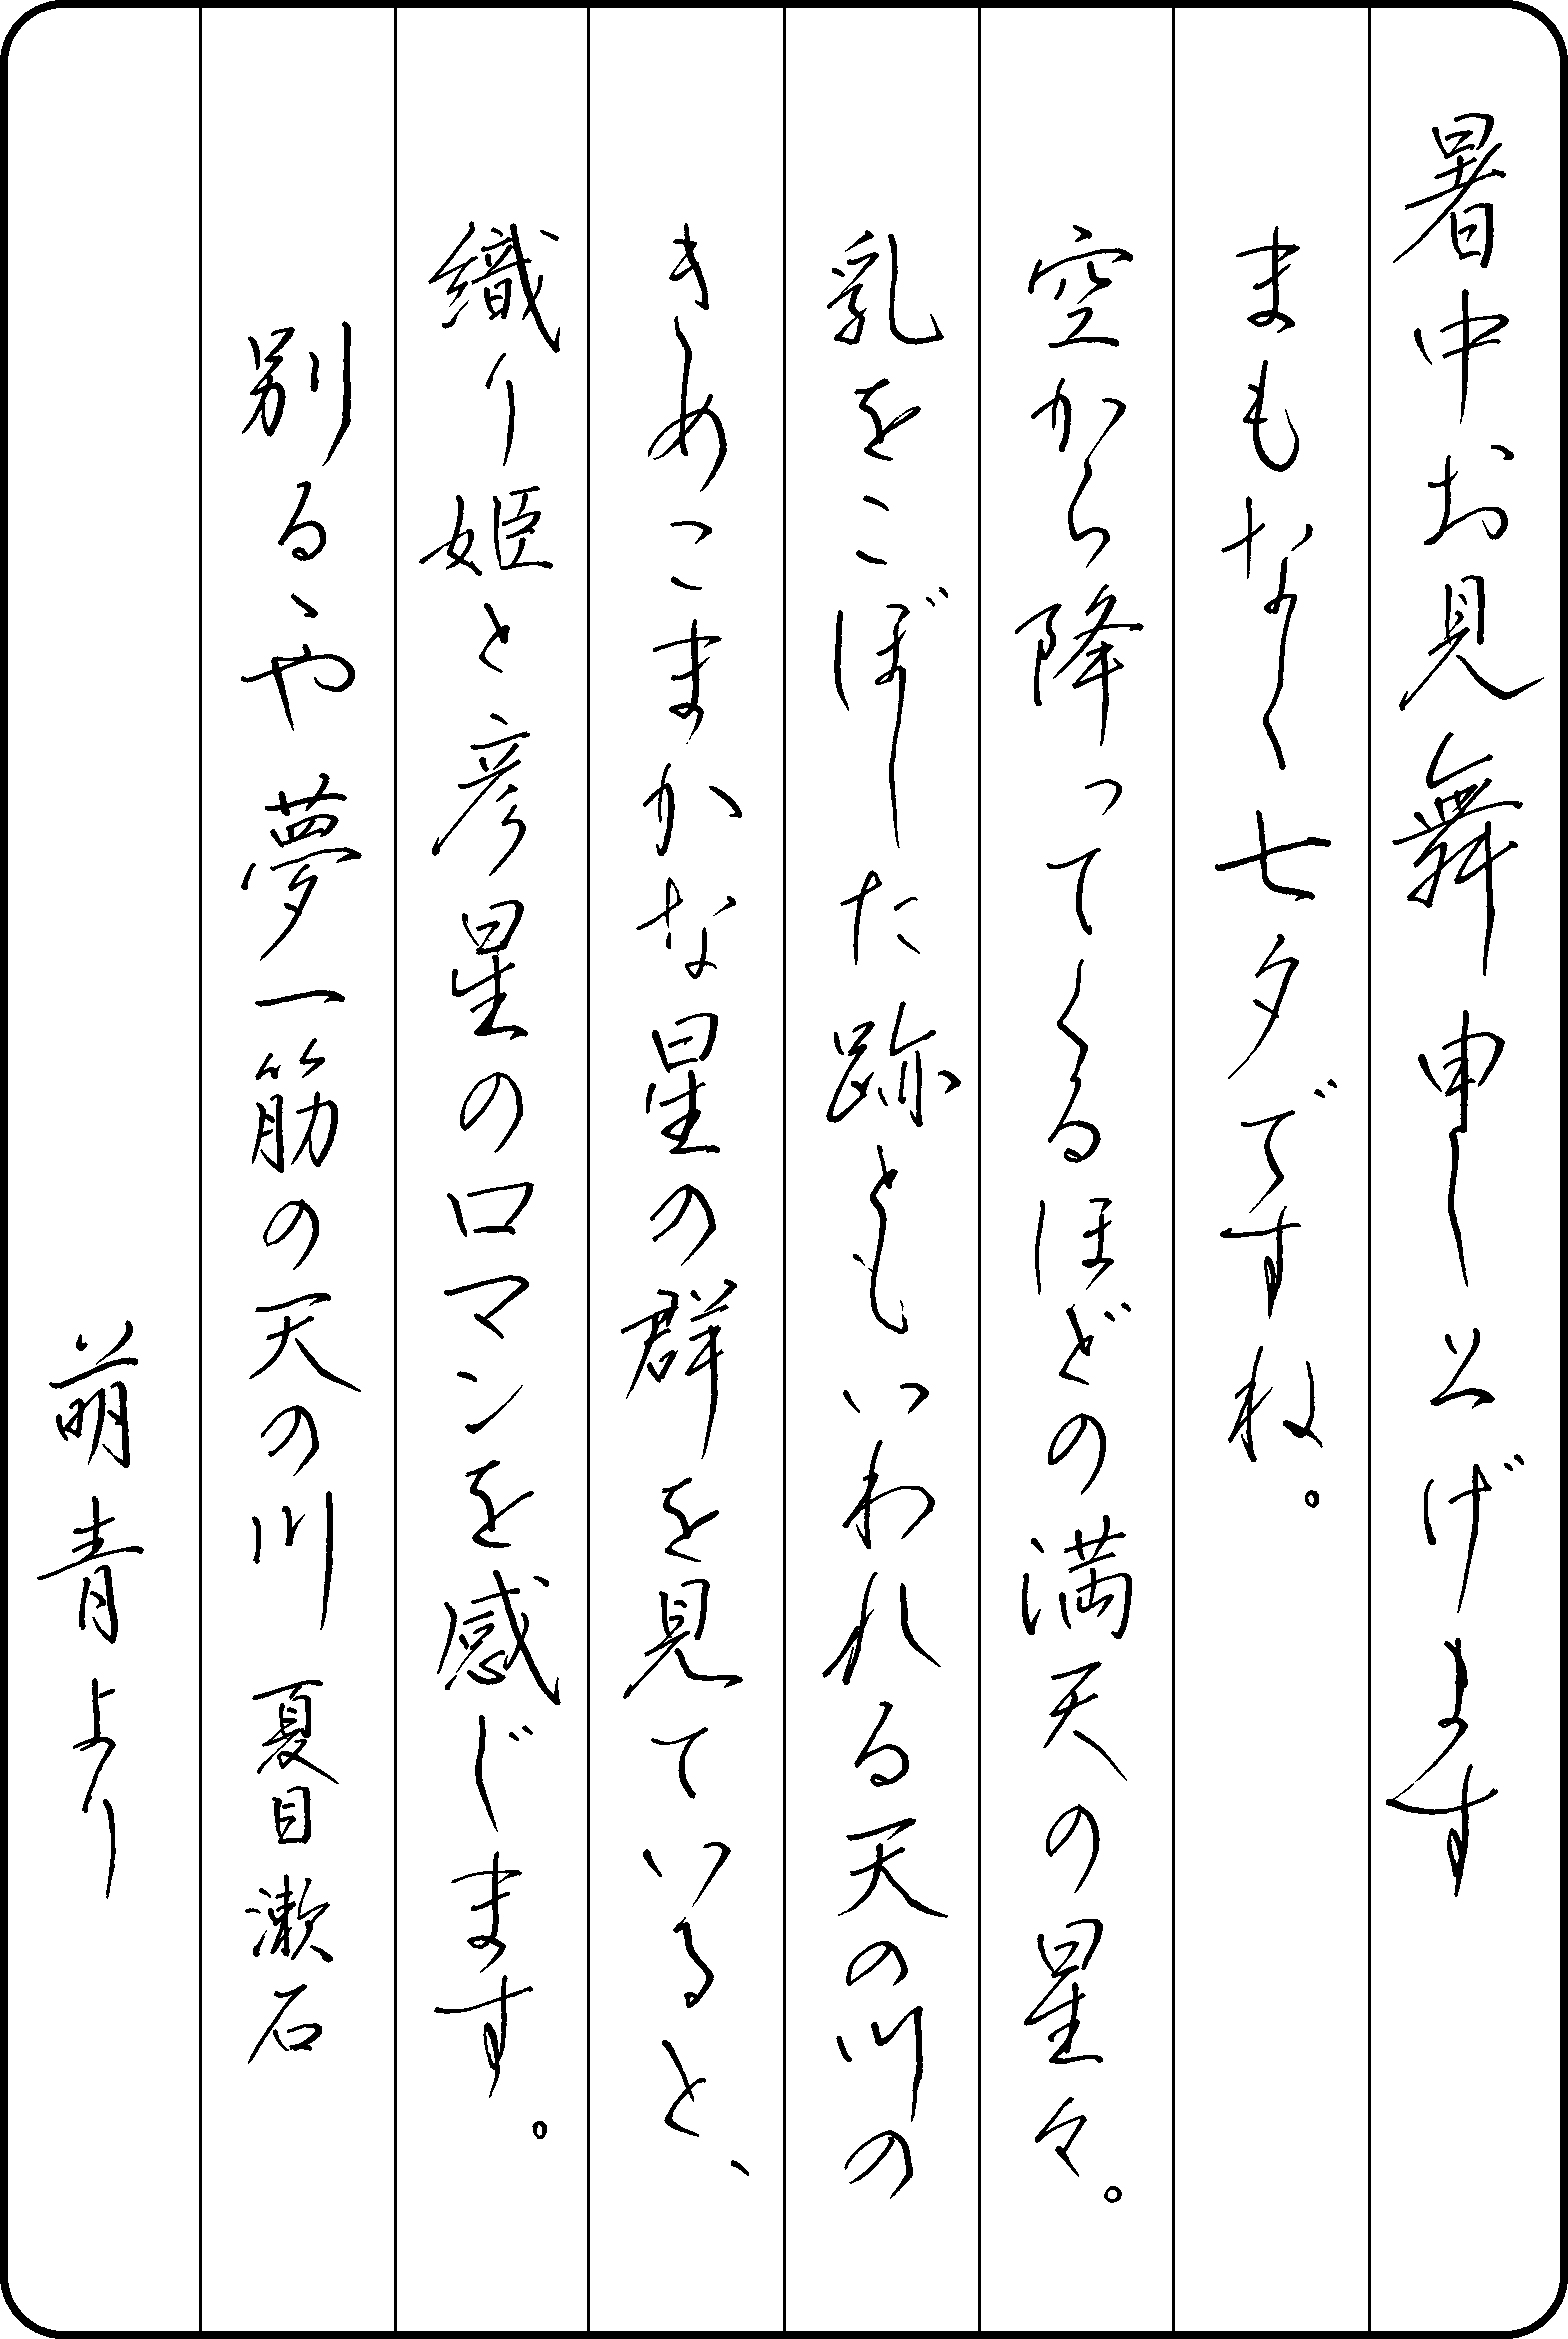 暑中お見舞申し上げます
まもなく七夕ですね。
空から降ってくるほどの満天の星々。
乳をこぼした跡ともいわれる天の川の
きめこまかな星の群を見ていると、
織り姫と彦星のロマンを感じます。
別るゝや夢一筋の天の川 夏目漱石
萌青より